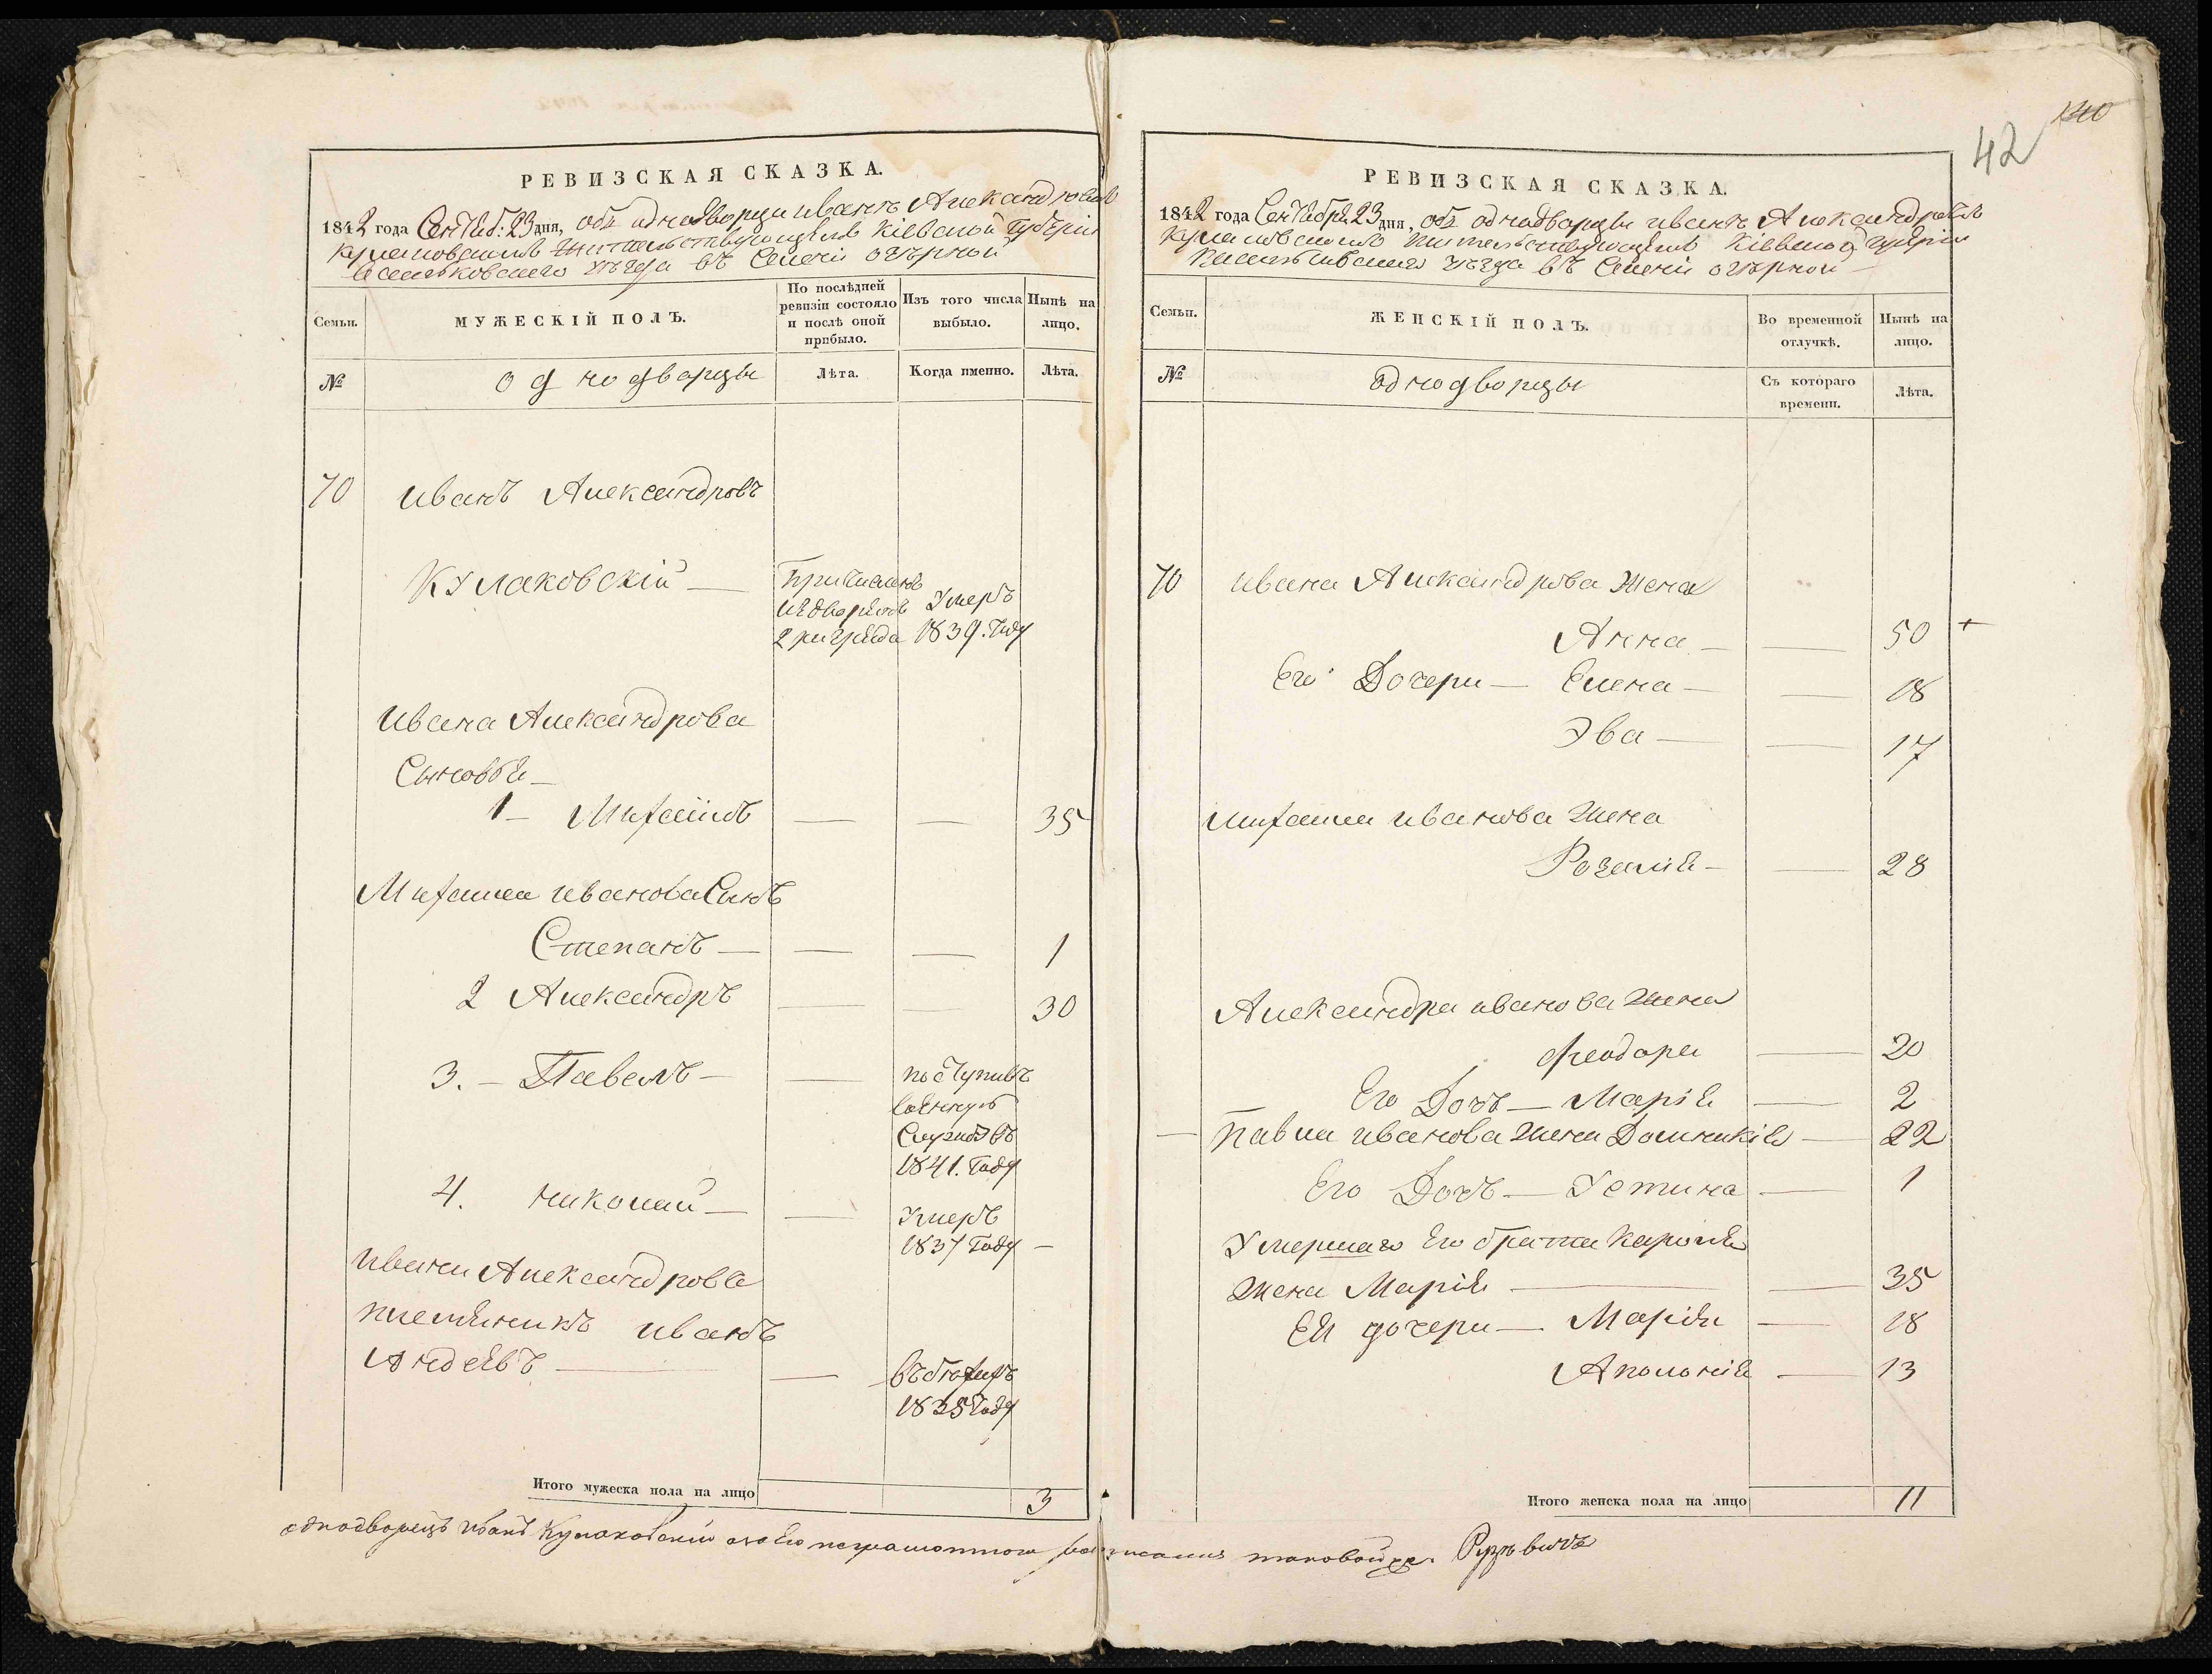 РЕВИЗСКАЯ СКАЗКА.
1842 года Сентяб: 23 дня, объ однодворци иванъ Александровъ
Кулаковскимъ жительствующимъ Кіевской Губерніи
Васильковскаго уѣзда въ Селеніи озѣрной
Семьи.
МУЖЕСКІЙ ПОЛЪ.
По послѣдней ревизіи состояло и послѣ оной прибыло.
Изъ того числа выбыло.
Нынѣ на лицо.
№
однодворцы
Лѣта.
Когда именно.
Лѣта.
70 иванъ Александровъ
Кулаковскій —
Причисленъ
Умеръ
2 разряда 1839. Году
ивана Александрова
Сыновья —
1 — Михаилъ — — 35
Михаила иванова Сынъ
Степанъ — — — 1
2 Александръ — — 30
3. — Павелъ — — поступилъ
военную
Службу въ
1841. Году
4. николай — — Умеръ
1837 Году —
ивана Александрова
племяникъ иванъ
— въ бѣгахъ
1835 Году
Итого мужеска пола на лицо 3
42
140
РЕВИЗСКАЯ СКАЗКА.
1842 года Сентября 23 дня, объ однодворцы иванъ Александровъ
Кулаковскимъ жительствующимъ Кіевской губерніи
уѣзда въ Селеніи озѣрной —
Семьи.
ЖЕНСКІЙ ПОЛЪ.
Во временной отлучкѣ.
Нынѣ на лицо.
№
однодворцы
Съ котораго времени.
Лѣта.
70 ивана Александрова жена
Анна — — 50 +
Его Дочери — Елена — — 18
Эва — — 17
михаила иванова жена
Розалія — — 28
Александра иванова жена
феодора — 20
Его Дочь — Марія — 2
— павла иванова жена Доминикія — 22
Его Дочь — Устина — 1
Умершаго Его брата Кароля
жена Марія — — 35
Ея дочери — Марія — 18
Аполонія — 13
Итого женска пола на лицо 11
однодворецъ Иванъ Кулаковскій а за Его неграмотного росписался таковой же